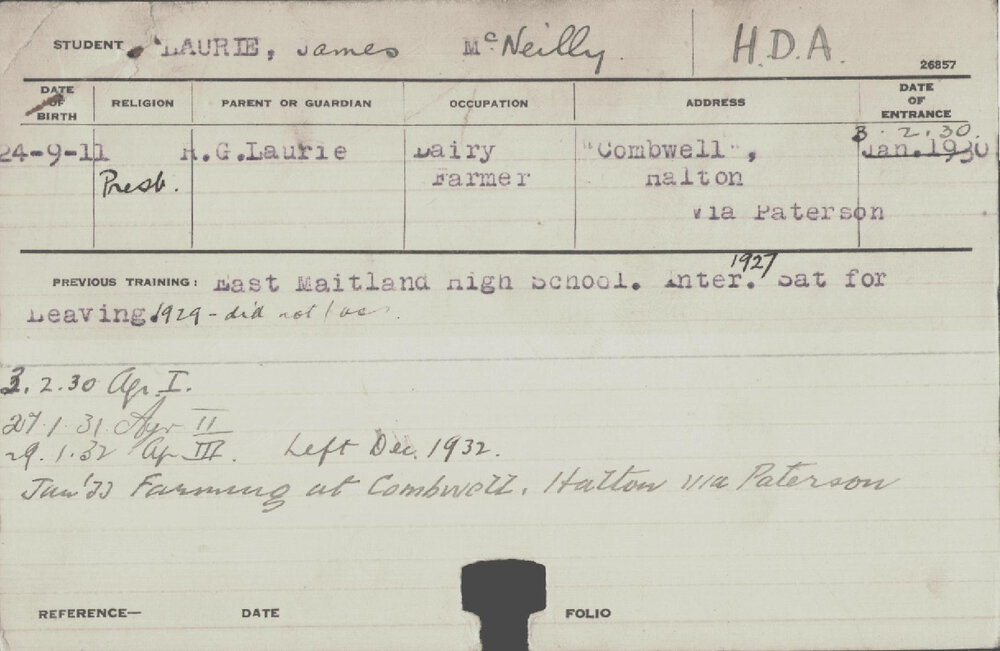 STUDENT LAURIE, James McNeilly. H.D.A. 26857
DATE OF BIRTH RELIGION PARENT OR GUARDIAN OCCUPATION ADDRESS DATE OF ENTRANCE
3.2.30.
24-9-11 H.G.Laurie Dairy "Combwell", Jan.1930
Presb. Farmer Halton
via Paterson
PREVIOUS TRAINING: East Maitland High School. Inter. 1927 Sat for
Leaving. 1929 - did not pass.
3.2.30 Agr. I.
27.1.31. Agr II
29.1.32 Agr III. Left Dec. 1932.
Jan '33 Farming at Combwell, Halton via Paterson
REFERENCE— DATE FOLIO